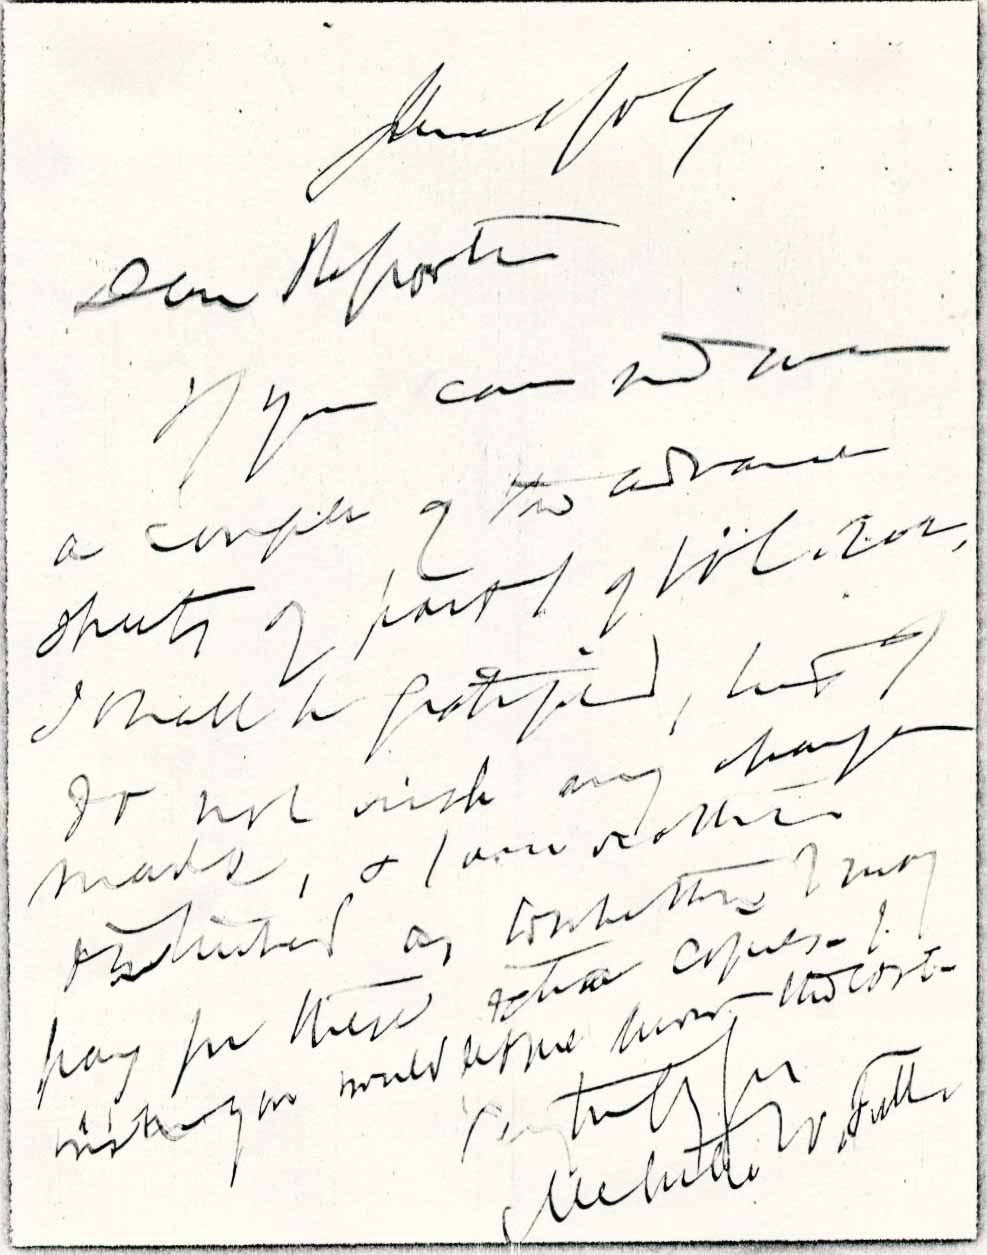 Dear Reporter
If you can send me
a couple of the advance
sheets of part 1 of Vol. 202,
I shall be gratified, but I
do not wish any change
made, &
as to whether I may
pay for these extra copies - I
wish you would let me know the cost -
Very truly yrs
Melville W. Fuller